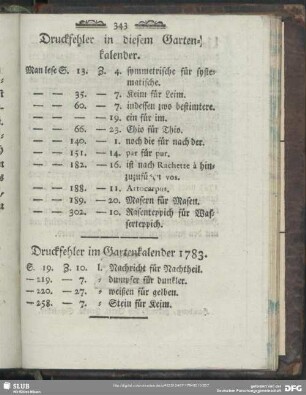 343
Druckfehler in diesem Garten-
kalender.
Man lese S. 13. Z. 4. symmetrische für syste-
matische.
— — 35. — 7. Keim für Leim.
— — 60. — 7. indessen zwo bestimtere.
— — — — 19. ein für im.
— — 66. — 23. Chio für Thio.
— — 140. — 1. noch die für nach der.
— — 151. — 14. par für pur.
— — 182. — 16. ist nach Rachette à hin-
zuzufügen vos.
— — 188. — 11. Artocarpus.
— — 189. — 20. Masern für Masen.
— — 302. — 10. Rasenteppich für Was-
serteppich.
Druckfehler im Gartenkalender 1783.
S. 19. Z. 10. l. Nachricht für Nachtheil.
— 219. — 7. = dumpfer für dunkler.
— 220. — 27. = weißen für gelben.
— 258. — 7. = Stein für Keim.
SLUB
DFG